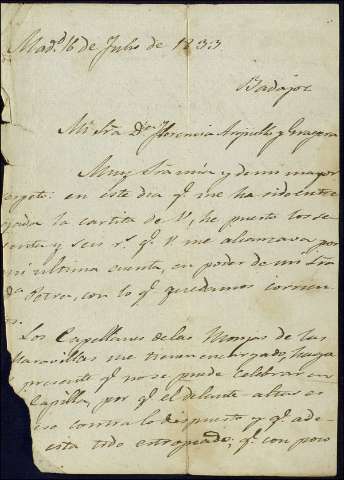 Mad.d 16 de Julio de 1833
Badajoz
Mi Sra d.a Florencia y
Muy Sra mia y de mi mayor
respeto: en este dia q.e me ha sido entre
gada la cartita de V, he puesto los se
senta y seis r.s q.e V. me alcanzava por
mi ultima cuenta, en poder de mi Sra
d.a Petra, con lo q.e quedamos corrien
tes.
Los Capellanes de las Monjas de las
Maravillas me tienen encargado, haga
presente q.e no se puede celebrar en
Capilla, por q.e el delante-altar es
eso contra lo dispuesto y q.e ade
esta todo estropeado, q.e con poco